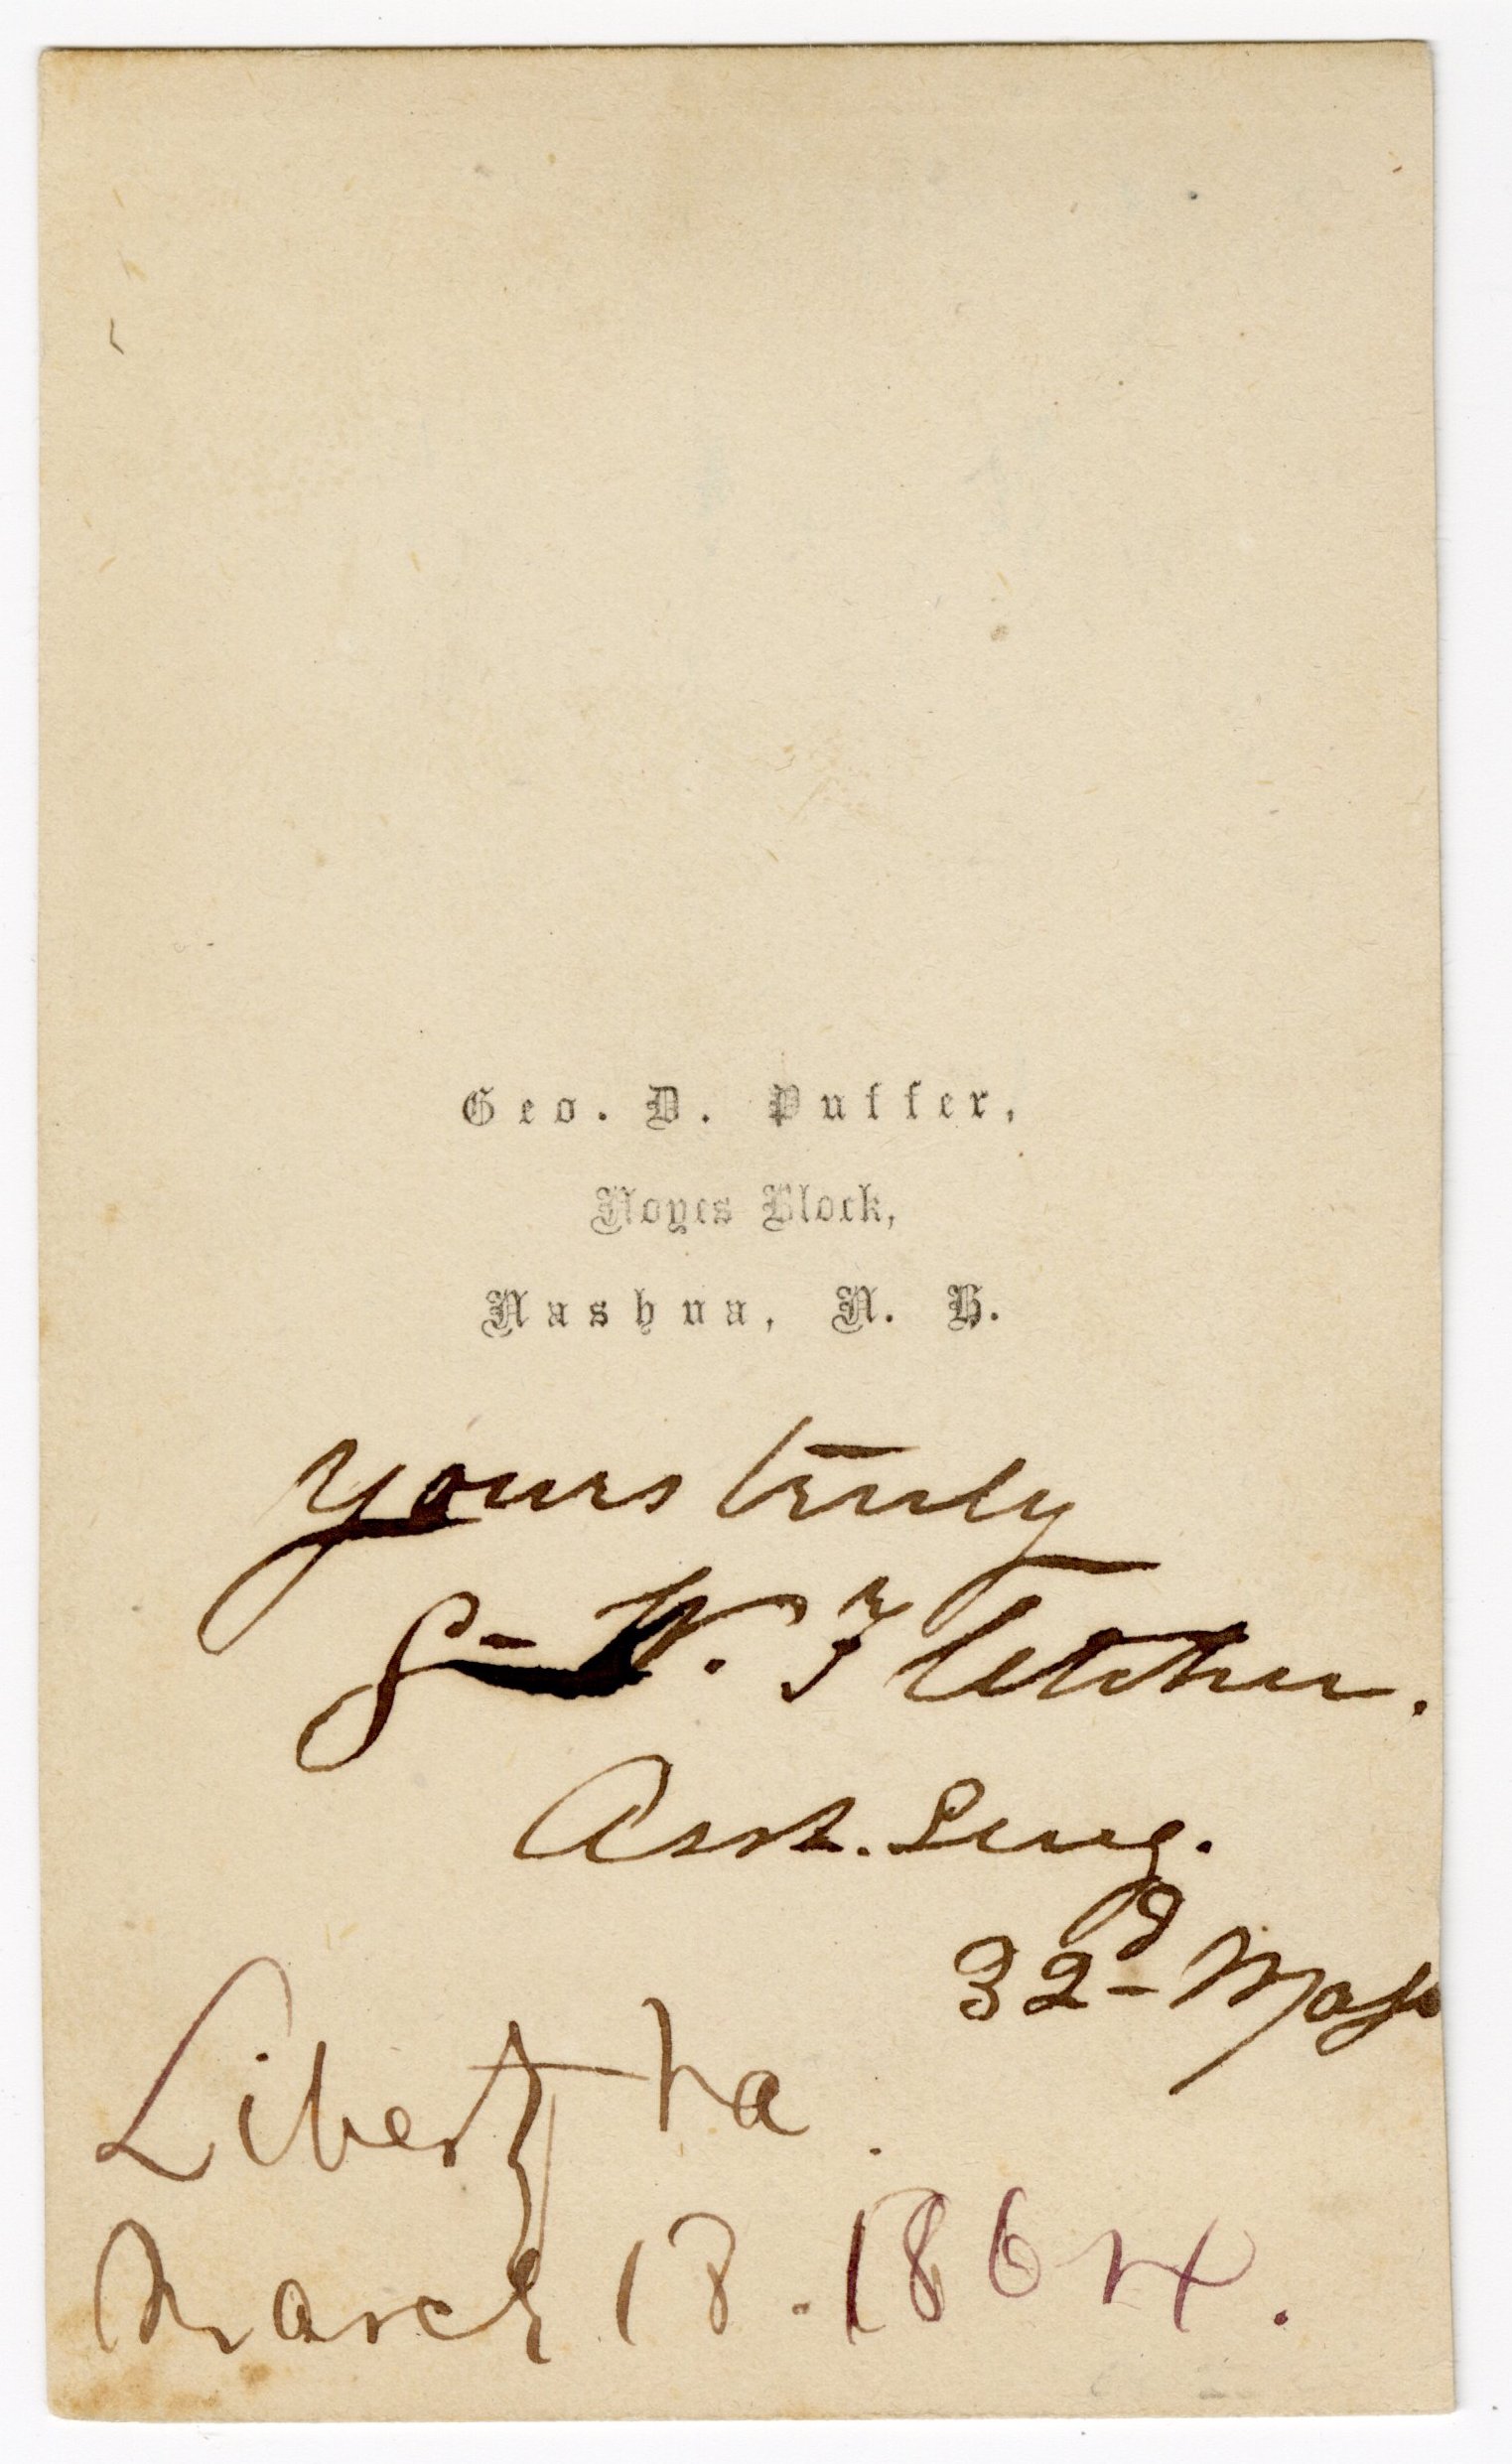 Geo. D. Puffer,
Noyes Block,
Nashua, N. H.
Yours truly
S- W. Fletcher.
Asst. Surg.
32d Mass
Liberty Va.
March 18. 1864.